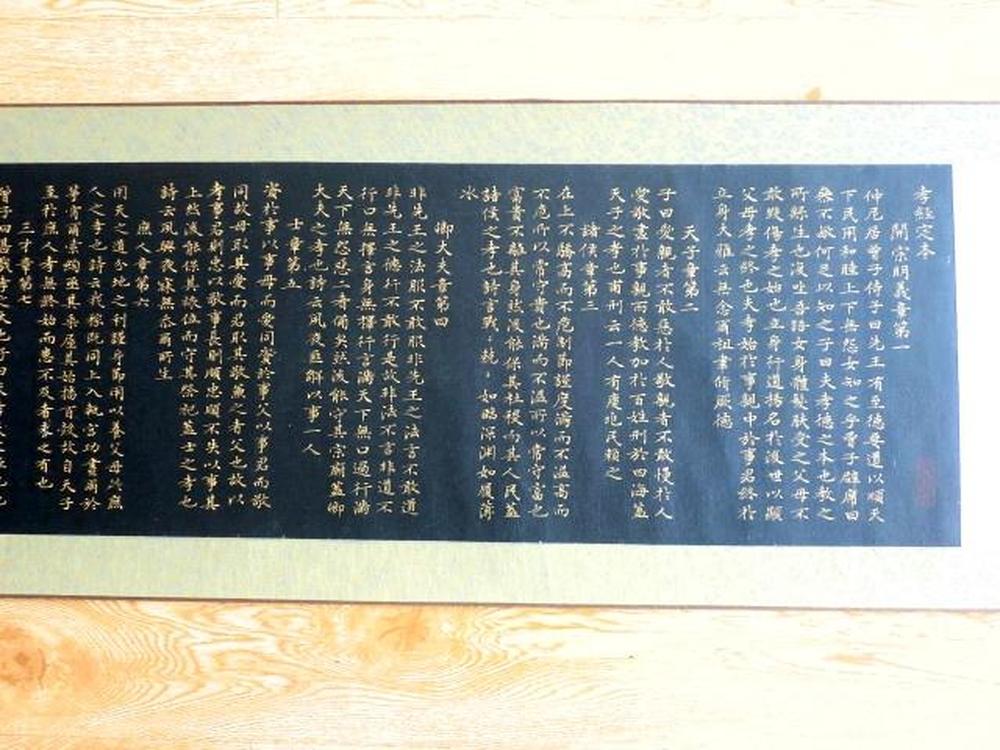 孝經定本
開宗明義章第一
仲尼居曾子侍子曰先王有至德要道以順天
下民用和睦上下無怨女知之乎曾子避席曰
參不敏何足以知之子曰夫孝德之本也教之
所繇生也復坐吾語女身體髮膚受之父母不
敢毀傷孝之始也立身行道揚名於後世以顯
父母孝之終也夫孝始於事親中於事君終於
立身大雅云無念爾祖聿脩厥德
天子章第二
子曰愛親者不敢惡於人敬親者不敢慢於人
愛敬盡於事親而德教加於百姓刑於四海蓋
天子之孝也甫刑云一人有慶兆民賴之
諸侯章第三
在上不驕高而不危制節謹度滿而不溢高而
不危所以常守貴也滿而不溢所以常守富也
富貴不離其身然後能保其社稷而其人民蓋
諸侯之孝也詩言戰〻兢〻如臨深淵如履薄
冰
卿大夫章第四
非先王之法服不敢服非先王之法言不敢道
非先王之德行不敢行是故非法不言非道不
行口無擇言身無擇行言滿天下無口過行滿
天下無怨惡三者備矣然後能守其宗廟蓋卿
大夫之孝也詩云夙夜匪懈以事一人
士章第五
資於事以事母而愛同資於事父以事君而敬
同故母取其愛而君取其敬兼之者父也故以
孝事君則忠以敬事長則順忠順不失以事其
上然後能保其祿位而守其祭祀蓋士之孝也
詩云夙興夜寐無忝爾所生
庶人章第六
用天之道分地之利謹身節用以養父母此庶
人之孝也詩云我稼既同上入執宮功晝爾於
茅宵爾索綯亟其乘屋其始播百穀故自天子
至於庶人孝無終始而患不及者未之有也
三才章第七